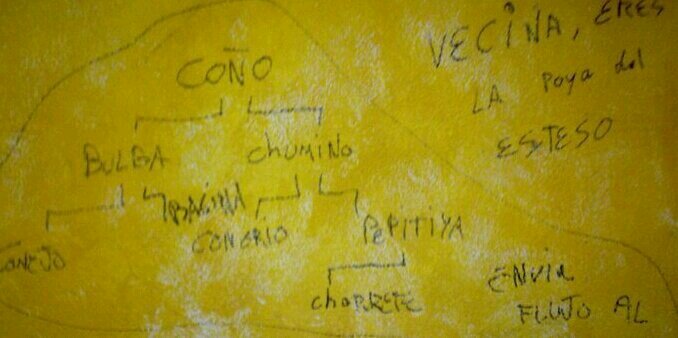 COÑO
BULBA chumiNo
CONEJO BAGINA CONEJIO PEPITIYA
chOPRETE
VECINA, ERES
LA poya del
ESTESO
ENVIA
FLUJO AL